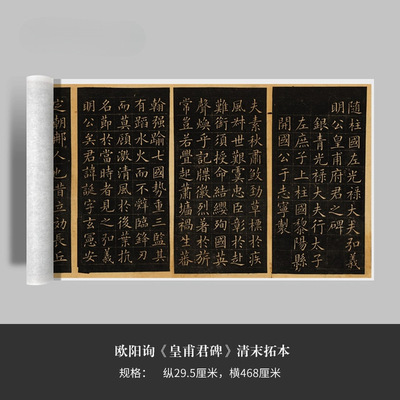 隨柱國左光禄大夫弘義
明公皇甫府君之碑
銀青光禄大夫行太子
左庶子上柱國黎陽縣
開國公于志寧製
夫素秋肅煞勁草標於疾
風叶世艱虞忠臣彰於赴
難銜須授命結纓殉國英
聲煥乎記牒徽烈著於旂
常豈若釁起蕭墻禍生蕃
翰强踰七國勢重三監其
有蹈水火而不辤臨鋒刃
而莫顧激清風於後葉抗
名節於當時者見之弘義
明公矣君諱誕字玄憲安
定朝那人也昔立効長丘
欧阳询《皇甫君碑》清末拓本
规格： 纵29.5厘米，横468厘米